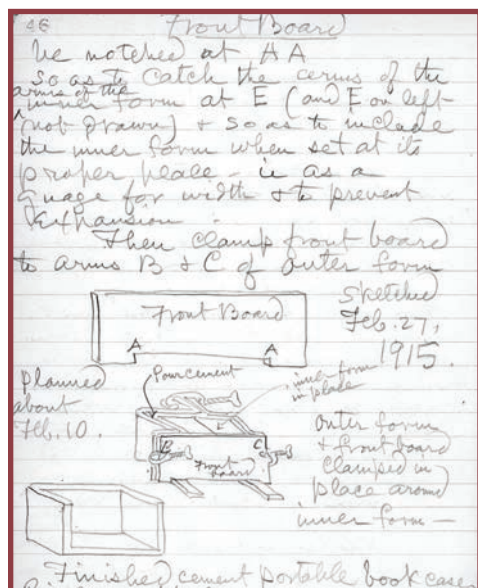 46
Front Board
be notched at A A
so as to catch the cerms of the
arms of the
inner form at E (and E on left
(not drawn) & so as to include
the inner form when set at its
proper place - ie as a
guage for width & to prevent
expansion.
Then clamp front board
to arms B & C of outer form
Sketched
Feb. 27,
1915.
Front Board
A A
planned
about
Feb. 10.
Pour cement
inner form
in place
B C
Front
board
outer form
& front board
clamped in
place around
inner form -
Finished cement portable book cases